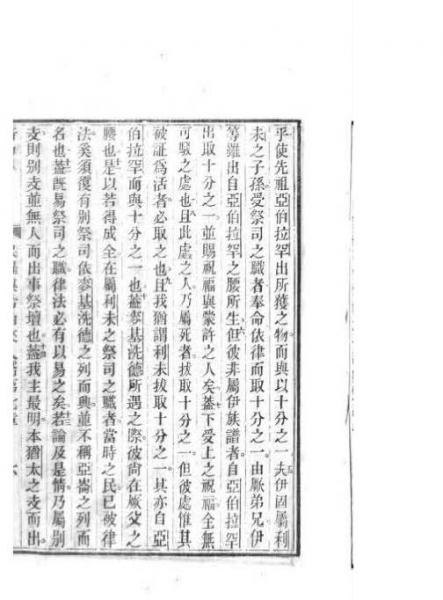 乎使先祖亞伯拉罕出所獲之物而與以十分之一夫伊固屬利
未之子孫受祭司之職者奉命依律而取十分之一由厥弟兄伊
等雖出自亞伯拉罕之腰所生但彼非屬伊族譜者自亞伯拉罕
出取十分之一並賜祝福與蒙許之人矣葢下受上之祝福全無
可駁之處也且此處之人乃屬死者拔取十分之一但彼處惟其
被証為活者必取之也且我猶謂利未拔取十分之一其亦自亞
伯拉罕而與十分之一也葢麥基洗德所遇之際彼尚在厥父之
腰也是以若得成全在屬利未之祭司之職者當時之民已被律
法奚須復有別祭司依麥基洗德之列而興並不稱亞崙之列而
名也葢既易祭司之職律法必有以易之矣若論及是情乃屬別
支則別支並無人而出事祭壇也葢我主最明本猶太之支而出